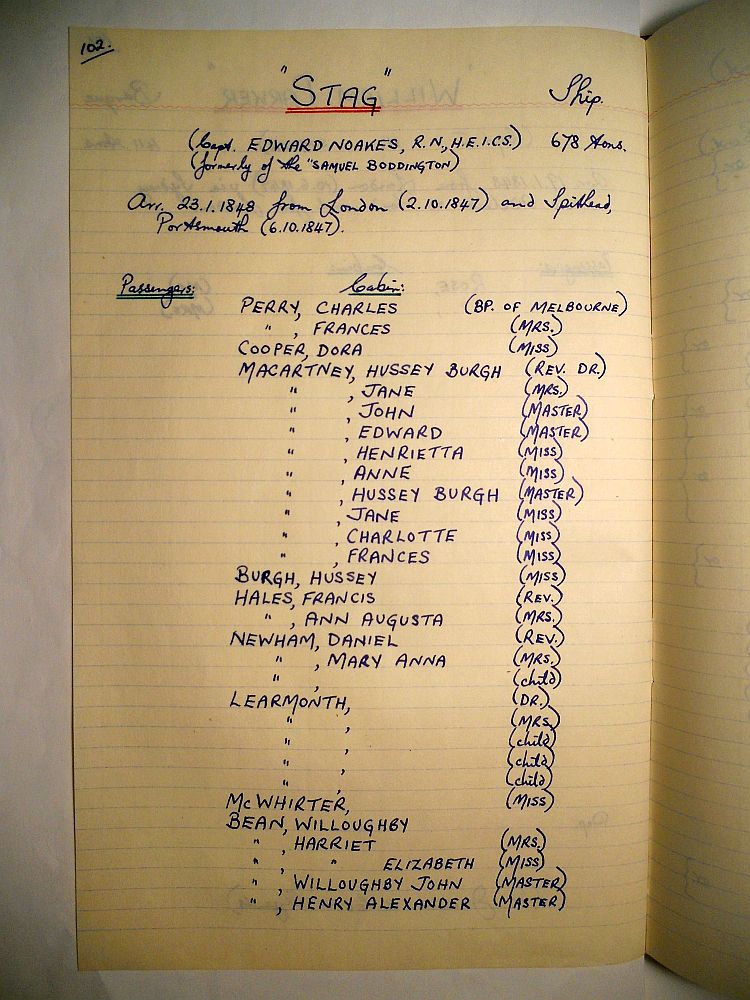 102.
"STAG" Ship.
(Capt. EDWARD NOAKES, R.N., H.E.I.C.S.) 678 tons.
(formerly of the "SAMUEL BODDINGTON)
Arr. 23.1.1848 from London (2.10.1847) and Spithead,
Portsmouth (6.10.1847).
Passengers: Cabin:
PERRY, CHARLES (BP. OF MELBOURNE)
" , FRANCES (MRS.)
COOPER, DORA (MISS)
MACARTNEY, HUSSEY BURGH (REV. DR.)
" , JANE (MRS.)
" , JOHN (MASTER)
" , EDWARD (MASTER)
" , HENRIETTA (MISS)
" , ANNE (MISS)
" , HUSSEY BURGH (MASTER)
" , JANE (MISS)
" , CHARLOTTE (MISS)
" , FRANCES (MISS)
BURGH, HUSSEY (MISS)
HALES, FRANCIS (REV.)
" , ANN AUGUSTA (MRS.)
NEWHAM, DANIEL (REV.)
" , MARY ANNA (MRS.)
" , (child)
LEARMONTH, (DR.)
" , (MRS.)
" , (child)
" , (child)
" , (child)
McWHIRTER, (MISS)
BEAN, WILLOUGHBY
" , HARRIET (MRS.)
" , " ELIZABETH (MISS)
" , WILLOUGHBY JOHN (MASTER)
" , HENRY ALEXANDER (MASTER)